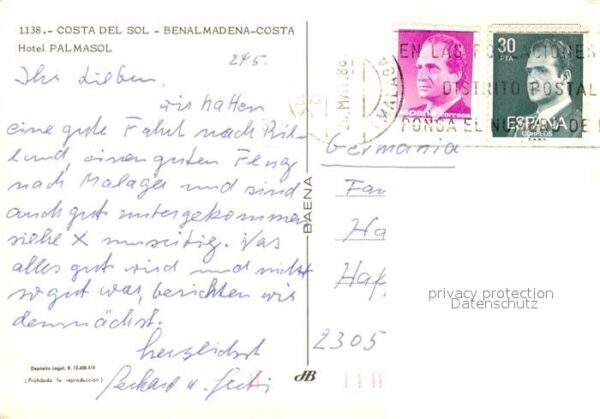 1138.- COSTA DEL SOL - BENALMADENA-COSTA
Hotel PALMASOL
24/5.
Ihr Lieben,
wir hatten
eine gute Fahrt nach
land, einen guten Flug
nach Malaga und sind
auch gut untergekommen
siehe X umseitig. Was
alles gut wird und nicht
so gut war, berichten wir
demnächst.
Herzlichst
Gerhard u.
Depósito Legal, B.
(Prohibida la reproducción)
BAENA
EN LAS POBLACIONES
DISTRITO POSTAL
PONGA EL NUMERO DE
MALAGA
España
correos
30
PTA
ESPAÑA
CORREOS
Germania
Fa
Ha
Haf
2305
privacy protection
Datenschutz